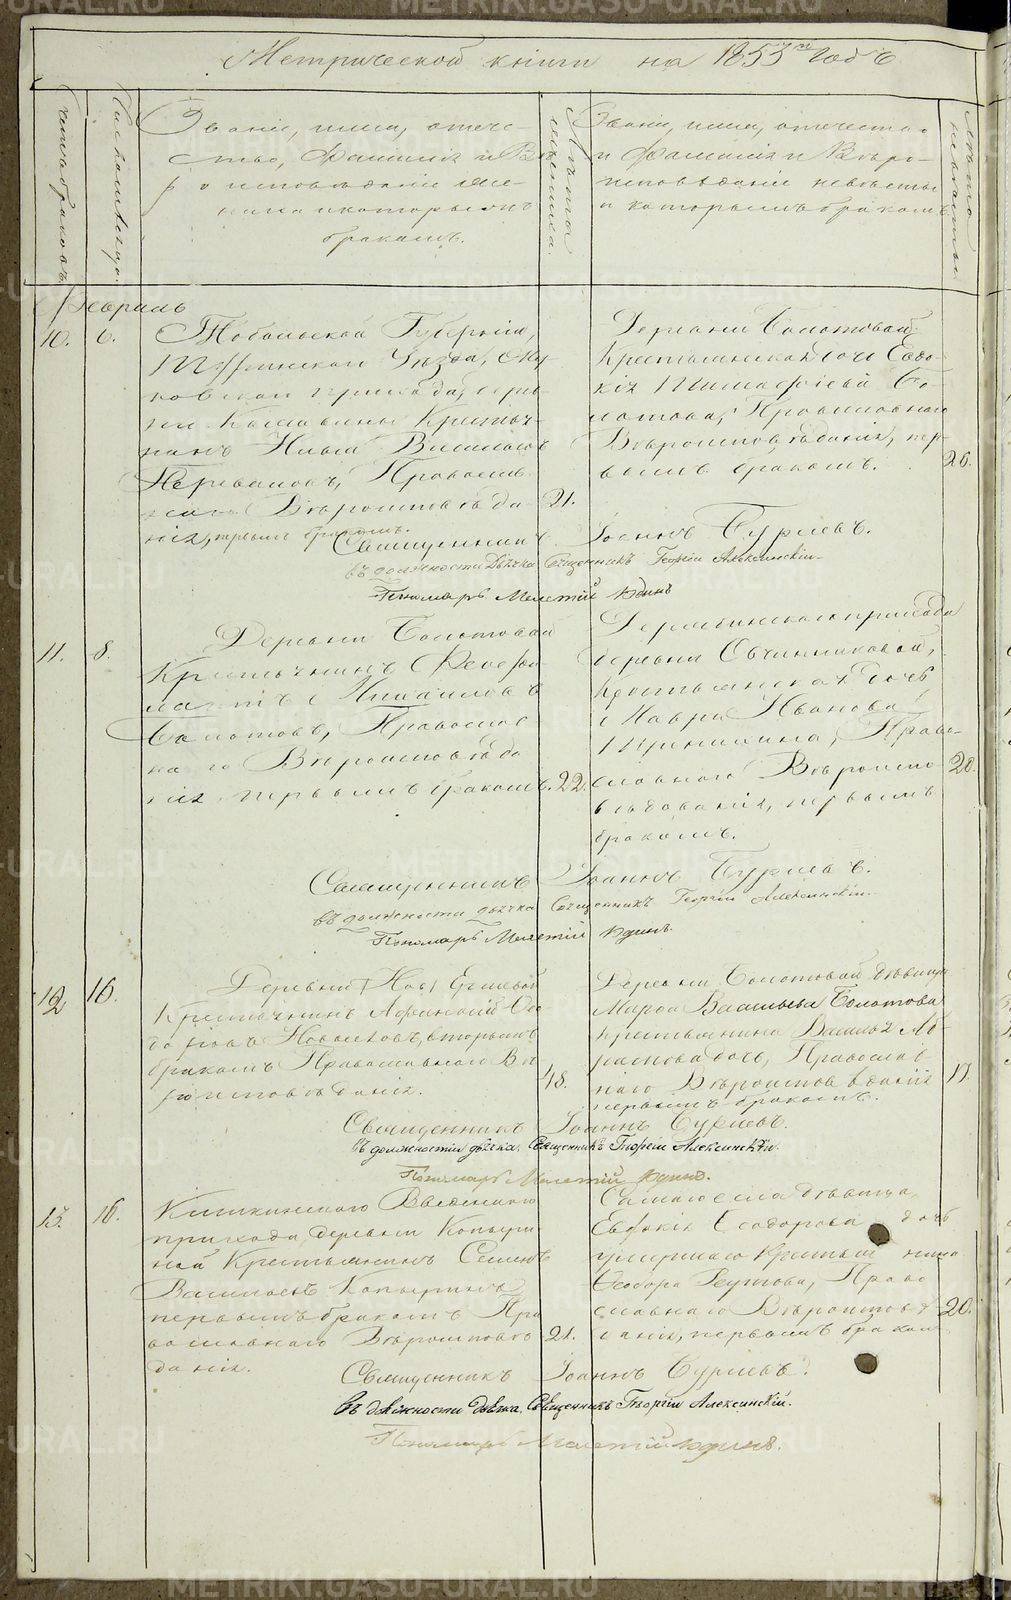 Метрической книги на 1853й годъ
Счетъ браковъ.
Звание, имя, отече-
ство, фамилия и Вѣ-
роисповѣдание же-
ниха и которымъ
бракомъ.
Лѣта
жениха.
Звание, имя, отчество
и фамилия и Вѣро-
исповѣдание невѣсты
и которымъ бракомъ
Лѣта
невѣсты
Февраль
10. 6.
Тобольской Губернии,
Уѣзда,
прихода, дерев-
Крестья-
нинъ Васильевъ
Православ-
наго Вѣроисповѣда
ния, бракомъ.
21.
Деревни Болотовой
Крестьянская дочь Евдо-
кия Тимофеева Бо-
лотова, Православнаго
Вѣроисповѣдания, пер-
вымъ бракомъ.
26.
Священникъ Иоаннъ Бурневъ.
въ должности Дьячка Священникъ Георгий Алексинский
Пономарь Мелетий Юдинъ
11. 8.
Деревни Болотовой
Крестьянинъ
Михайловъ
Болотовъ, Православ
наго Вѣроисповѣда
ния первымъ бракомъ.
22.
прихода
деревни Овчинниковой,
Крестьянская дочь
Мавра Иванова
Православнаго Вѣроиспо-
вѣдания, первымъ
бракомъ.
20.
Священникъ Иоаннъ Бурневъ.
въ должности дьячка Священникъ Георгий Алексинский
Пономарь Мелетий Юдинъ.
12 16.
Деревни
Крестьянинъ Афанасий Ѳео
доровъ Новоселовъ, вторымъ
бракомъ Православнаго Вѣ
роисповѣдания.
48.
Деревни Болотовой дѣвица
Марѳа Васильева Болотова
крестьянина Василья Аб-
рамова дочь, Православ
наго Вѣроисповѣдания
первымъ бракомъ.
17.
Священникъ Иоаннъ Бурневъ.
въ должности дьячка, Священникъ Георгий Алексинский.
Пономарь Мелетий Юдинъ.
13. 16.
Введенскаго
прихода, деревни Копыри-
ной Крестьянинъ Семенъ
Васильевъ Копыринъ
первымъ бракомъ Пра
вославнаго Вѣроисповѣ
дания.
21.
села дѣвица,
Евфимия Ѳеодорова дочь
умершаго Крестьянина
Ѳеодора Реутова, Право
славнаго Вѣроисповѣ
дания, первымъ браком
20.
Священникъ Иоаннъ Бурневъ.
въ должности дьячка, Священникъ Георгий Алексинский.
Пономарь Мелетий Юдинъ.
METRIKI.GASO-URAL.RU